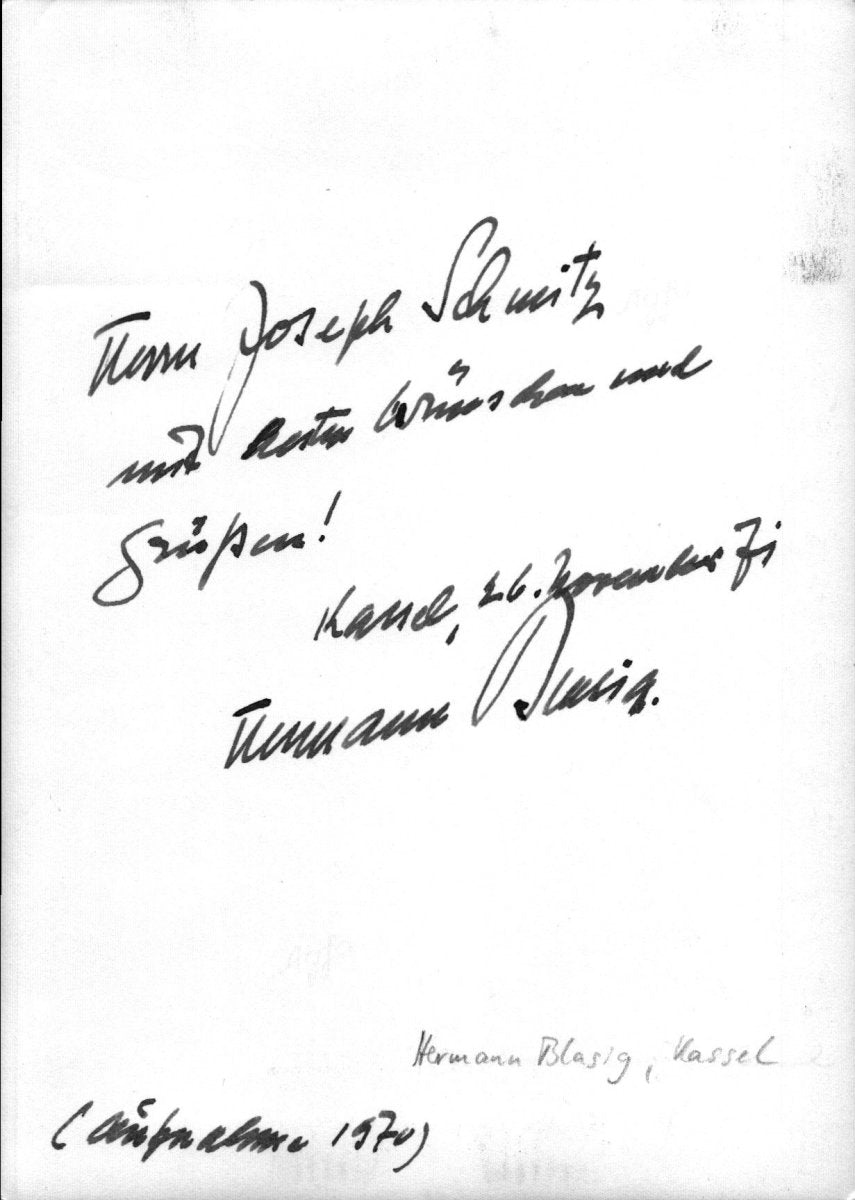 Herrn Joseph Schmitz
mit besten Wünschen und
Grüßen!
Kassel, 26. November 71
Hermann Blasig.
Hermann Blasig, Kassel
(Aufnahme 1970)